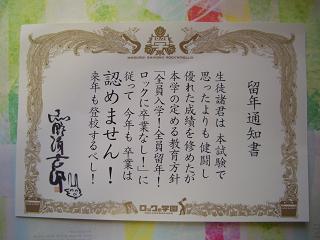 留年通知書
生徒諸君は 本試験で
思ったよりも 健闘し
優れた成績を修めたが
本学の定める教育方針
「全員入学！全員留年！
ロックに卒業なし！」に
従って 今年も 卒業は
認めません！
来年も登校するべし！
ロックの学園